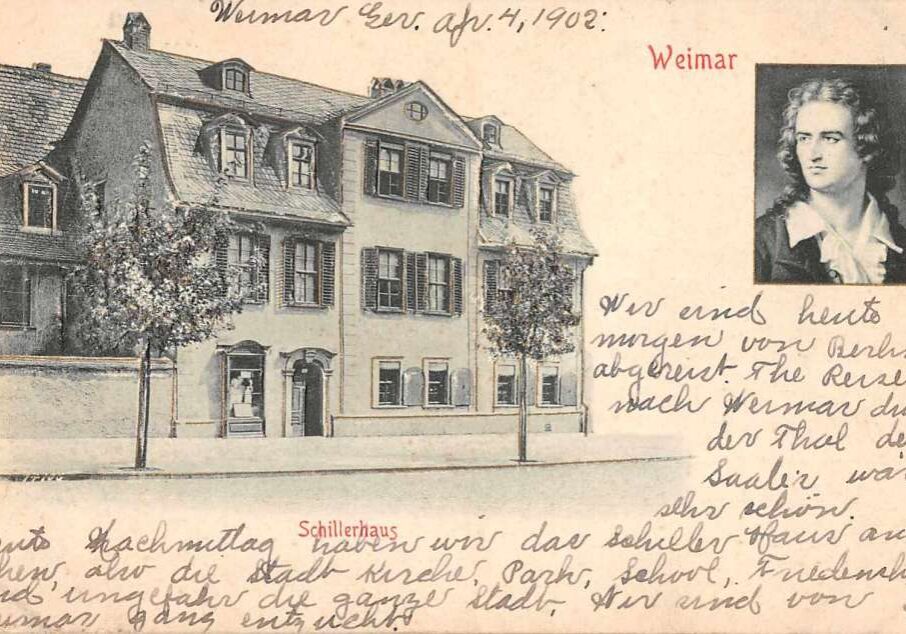 Weimar Ger. Apr. 4, 1902.
Weimar
Wir sind heute
morgen von Berli
abgereist. The Reise
nach Weimar du
der Thal de
Saale war
sehr schön.
Schillerhaus
eute Nachmittag haben wir das Schiller Haus an
hen, also die Stadt Kirche, Park, School, Friedensh
nd ungefahr die ganze Stadt. Wir sind von
eimar ganz entzucht.